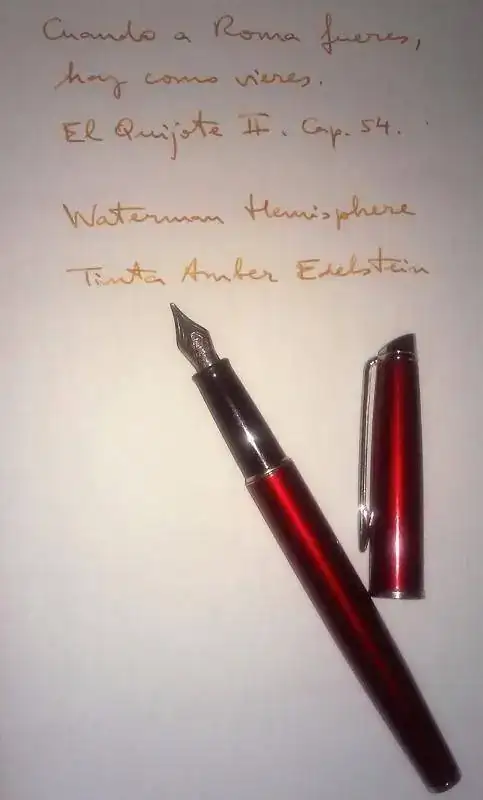 Cuando a Roma fueres,
haz como vieres.
El Quijote II. Cap. 54.
Waterman Hemisphere
Tinta Amber Edelstein